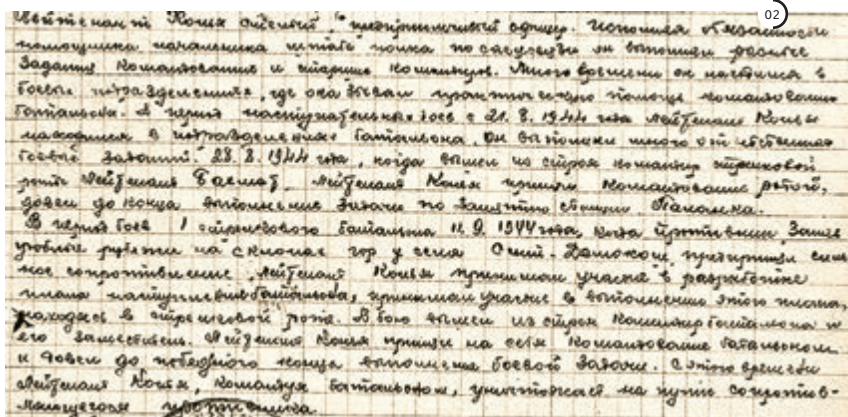 02
Лейтенант Конья смелый и инициативный офицер. Исполняя обязанности
помощника начальника штаба полка по он выполнял
задания командования и старших командиров. Много времени он находился в
боевых подразделениях, где оказывал практическую помощь командованию
батальона. В период наступательных боев с 21.8.1944 года лейтенант Конья
находился в подразделениях батальона, он выполнял много ответственных
боевых заданий. 28.8.1944 года, когда вышел из строя командир стрелковой
роты лейтенант лейтенант Конья принял командование ротой,
довел до конца выполнение задачи по занятию станции Паланка.
В период боев 1 стрелкового батальона 11.9.1944 года, когда противник занял
рубежи на склонах гор у села
сопротивление, лейтенант Конья принимал участие в разработке
плана наступления батальона, принимал участие в выполнении этого плана,
находясь в стрелковой роте. В бою вышел из строя командир батальона и
его заместитель. Лейтенант Конья принял на себя командование батальоном
и довел до победного конца выполнение боевой задачи. С этого времени
лейтенант Конья, командуя батальоном, уничтожает на пути сопротив-
ляющегося противника.